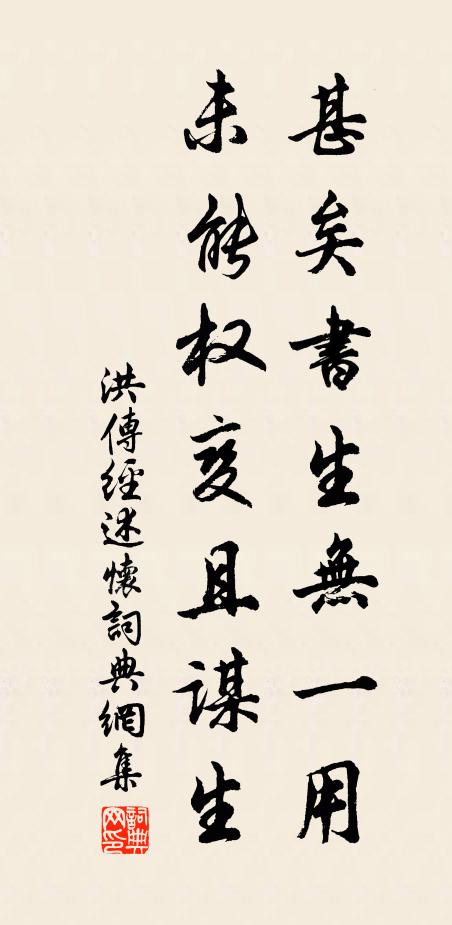 甚矣書生無一用
未能权变且謀生
洪傳經述懷詞典網集
詞典網印